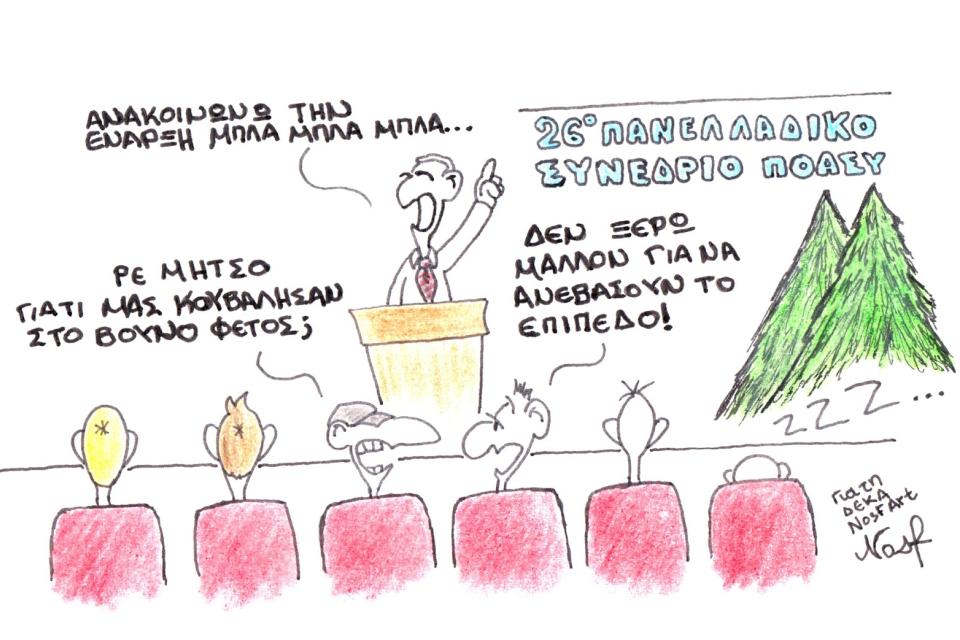 ΑΝΑΚΟΙΝΩΝΩ ΤΗΝ
ΕΝΑΡΞΗ ΜΠΛΑ ΜΠΛΑ ΜΠΛΑ...
26ο ΠΑΝΕΛΛΑΔΙΚΟ
ΣΥΝΕΔΡΙΟ ΠΟΑΣΥ
ΡΕ ΜΗΤΣΟ
ΓΙΑΤΙ ΜΑΣ ΚΟΥΒΑΛΗΣΑΝ
ΣΤΟ ΒΟΥΝΟ ΦΕΤΟΣ;
ΔΕΝ ΞΕΡΩ
ΜΑΛΛΟΝ ΓΙΑ ΝΑ
ΑΝΕΒΑΣΟΥΝ ΤΟ
ΕΠΙΠΕΔΟ!
ZZZ...
Για τη
ΔΕΚΑ
NosFArt
Nosf